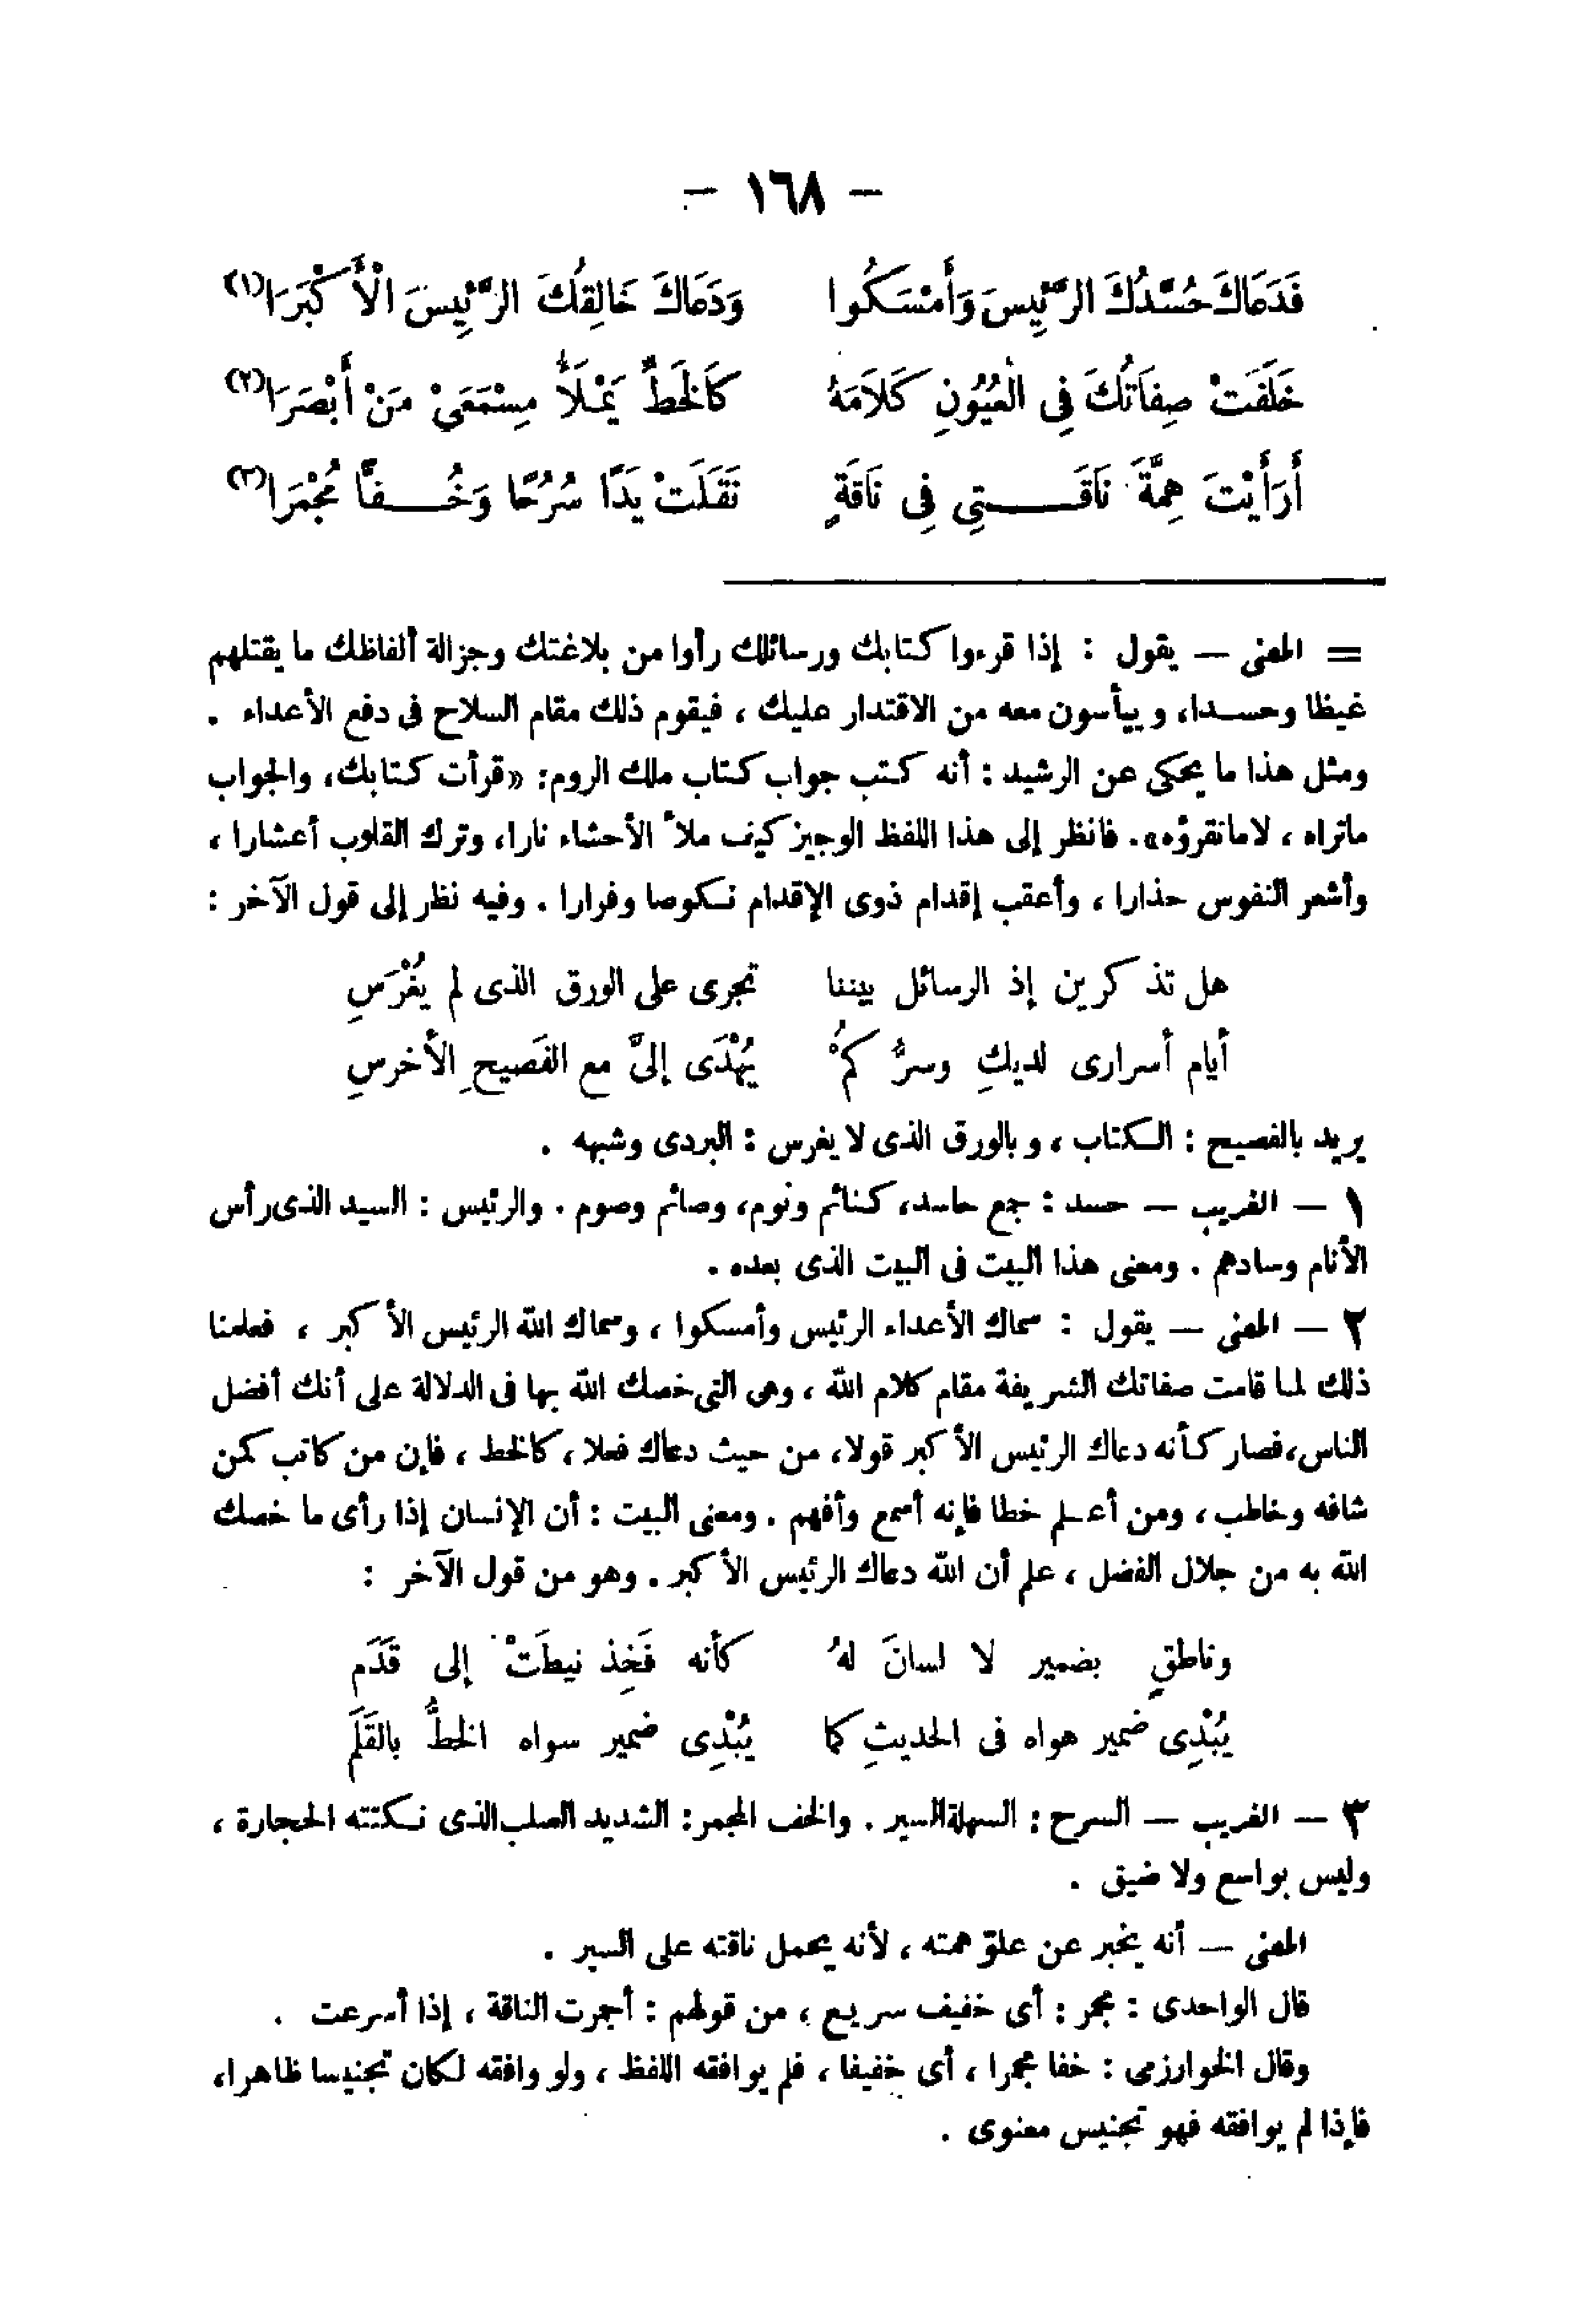 — ١٦٨ —
فَدَعَاكَ حُسَّدُكَ الرَّئِيسَ وَأَمْسَكُوا وَدَعَاكَ خَالِقُكَ الرَّئِيسَ الْأَكْبَرَا(١)
خَلَفَتْ صِفَاتُكَ فِى الْعُيُونِ كَلَامَهُ كَالْخَطِّ يَمْلَأُ مِسْمَعَىْ مَنْ أَبْصَرَا(٢)
أَرَأَيْتَ هِمَّةَ نَاقَتِى فِى نَاقَةٍ نَقَلَتْ يَدًا سُرُحًا وَخُفًّا مُجْمَرَا(٣)
= المعنى — يقول : إذا قرءوا كتابك ورسائلك رأوا من بلاغتك وجزالة ألفاظك ما يقتلهم
غيظا وحسدا، وييأسون معه من الاقتدار عليك ، فيقوم ذلك مقام السلاح فى دفع الأعداء .
ومثل هذا ما يحكى عن الرشيد : أنه كتب جواب كتاب ملك الروم: «قرأت كتابك، والجواب
ماتراه ، لامانقرؤه». فانظر إلى هذا اللفظ الوجيز كيف ملأ الأحشاء نارا، وترك القلوب أعشارا ،
وأشعر النفوس حذارا ، وأعقب إقدام ذوى الإقدام نكوصا وفرارا . وفيه نظر إلى قول الآخر :
هل تذكرين إذ الرسائل بيننا تجرى على الورق الذى لم يُغْرَسِ
أيام أسرارى لديكِ وسرُّكُمْ يُهْدَى إلىَّ مع الفَصيحِ الأخرسِ
يريد بالفصيح : الكتاب ، وبالورق الذى لا يغرس : البردى وشبهه .
١ — الغريب — حسد : جمع حاسد، كنائم ونوم، وصائم وصوم . والرئيس : السيد الذى رأس
الأنام وسادهم . ومعنى هذا البيت فى البيت الذى بعده .
٢ — المعنى — يقول : سماك الأعداء الرئيس وأمسكوا ، وسماك الله الرئيس الأكبر ، فعلمنا
ذلك لما قامت صفاتك الشريفة مقام كلام الله ، وهى التى خصك الله بها فى الدلالة على أنك أفضل
الناس، فصار كأنه دعاك الرئيس الأكبر قولا، من حيث دعاك فعلا ، كالخط ، فإن من كاتب كمن
شافه وخاطب ، ومن أعلم خطا فإنه أسمع وأفهم . ومعنى البيت : أن الإنسان إذا رأى ما خصك
الله به من جلال الفضل ، علم أن الله دعاك الرئيس الأكبر . وهو من قول الآخر :
وناطقٍ بضمير لا لسانَ لهُ كأنه فَخِذ نيطَتْ إلى قَدَم
يُبْدِى ضمير هواه فى الحديثِ كما يُبْدِى ضمير سواه الخطُّ بالقَلَم
٣ — الغريب — السرح : السهلة السير . والخف المجمر : الشديد الصلب الذى نكتته الحجارة ،
وليس بواسع ولا ضيق .
المعنى — أنه يخبر عن علوّ همته ، لأنه يحمل ناقته على السير .
قال الواحدى : مجمر : أى خفيف سريع ، من قولهم : أجمرت الناقة ، إذا أسرعت .
وقال الخوارزمى : خفا مجمرا ، أى خفيفا ، فلم يوافقه اللفظ ، ولو وافقه لكان تجنيسا ظاهرا،
فإذا لم يوافقه فهو تجنيس معنوى .